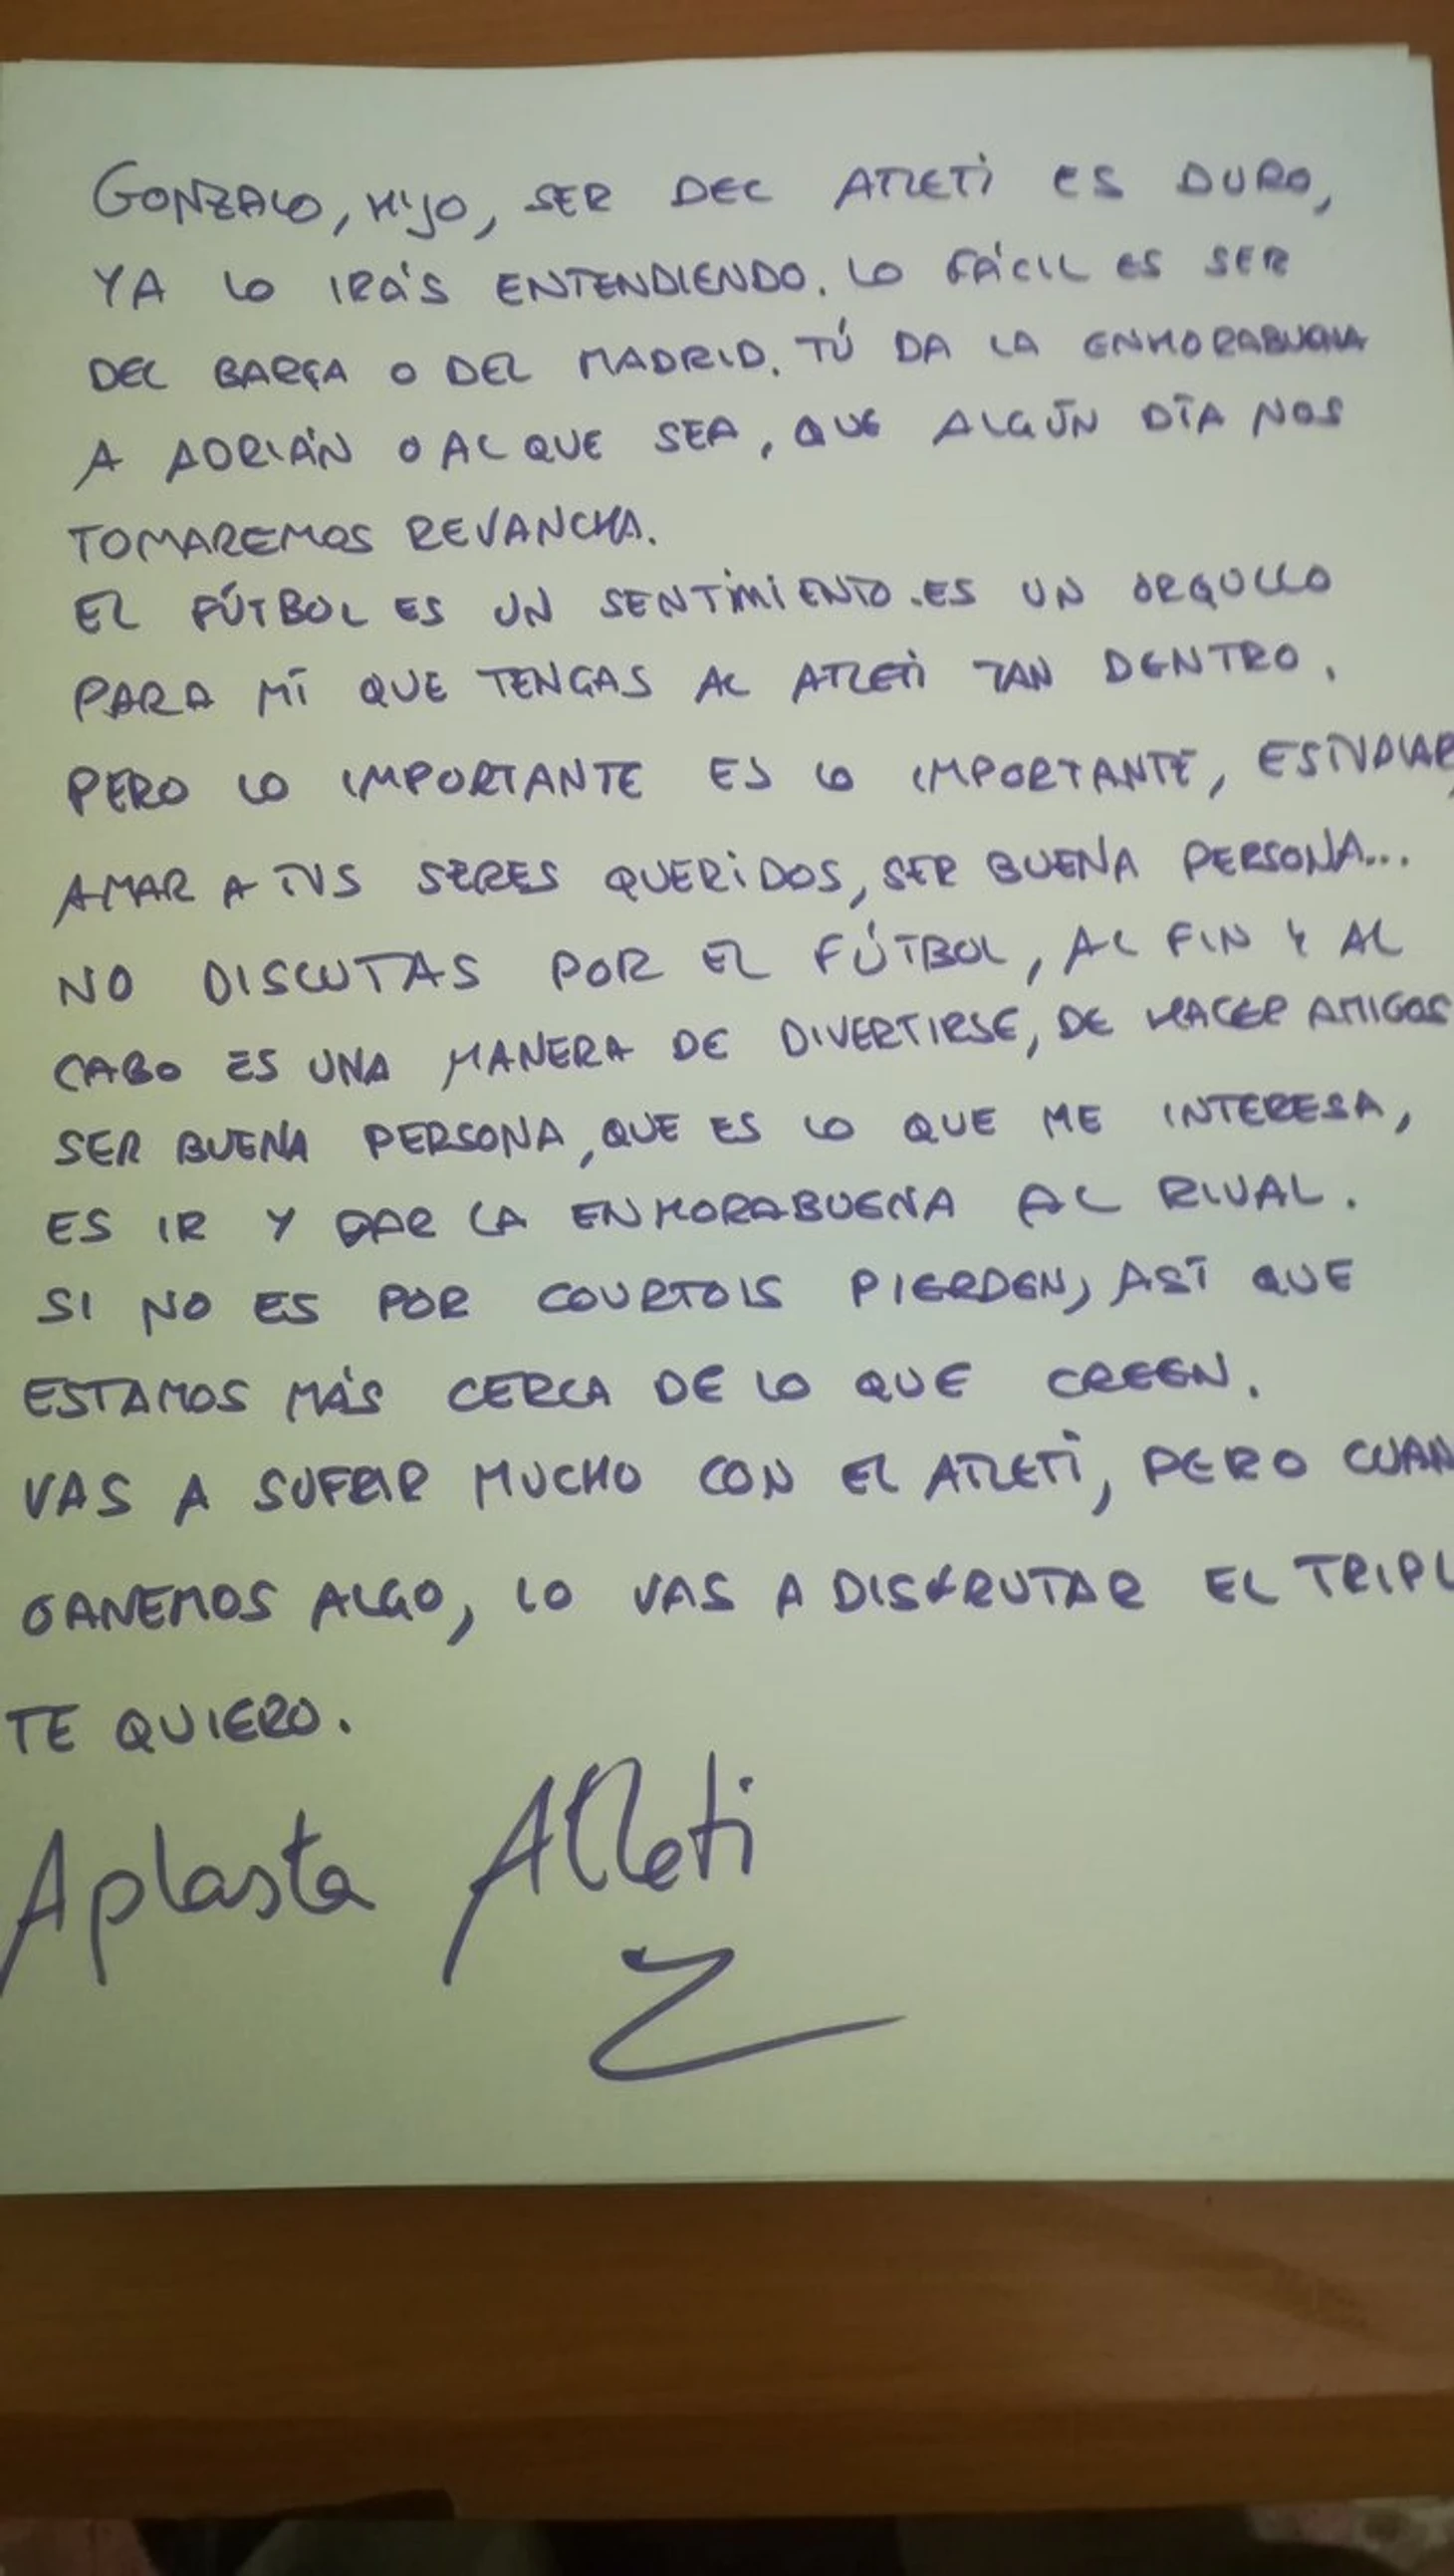 GONZALO, HIJO, SER DEL ATLETI ES DURO,
YA LO IRÁS ENTENDIENDO. LO FÁCIL ES SER
DEL BARÇA O DEL MADRID. TÚ DA LA ENHORABUENA
A ADRIÁN O AL QUE SEA, QUE ALGÚN DÍA NOS
TOMAREMOS REVANCHA.
EL FÚTBOL ES UN SENTIMIENTO. ES UN ORGULLO
PARA MÍ QUE TENGAS AL ATLETI TAN DENTRO,
PERO LO IMPORTANTE ES LO IMPORTANTE, ESTUDIAR,
AMAR A TUS SERES QUERIDOS, SER BUENA PERSONA...
NO DISCUTAS POR EL FÚTBOL, AL FIN Y AL
CABO ES UNA MANERA DE DIVERTIRSE, DE HACER AMIGOS
SER BUENA PERSONA, QUE ES LO QUE ME INTERESA,
ES IR Y DAR LA ENHORABUENA AL RIVAL.
SI NO ES POR COURTOIS PIERDEN, ASÍ QUE
ESTAMOS MÁS CERCA DE LO QUE CREEN.
VAS A SUFRIR MUCHO CON EL ATLETI, PERO CUAN
GANEMOS ALGO, LO VAS A DISFRUTAR EL TRIPL
TE QUIERO.
Aplasta Atleti